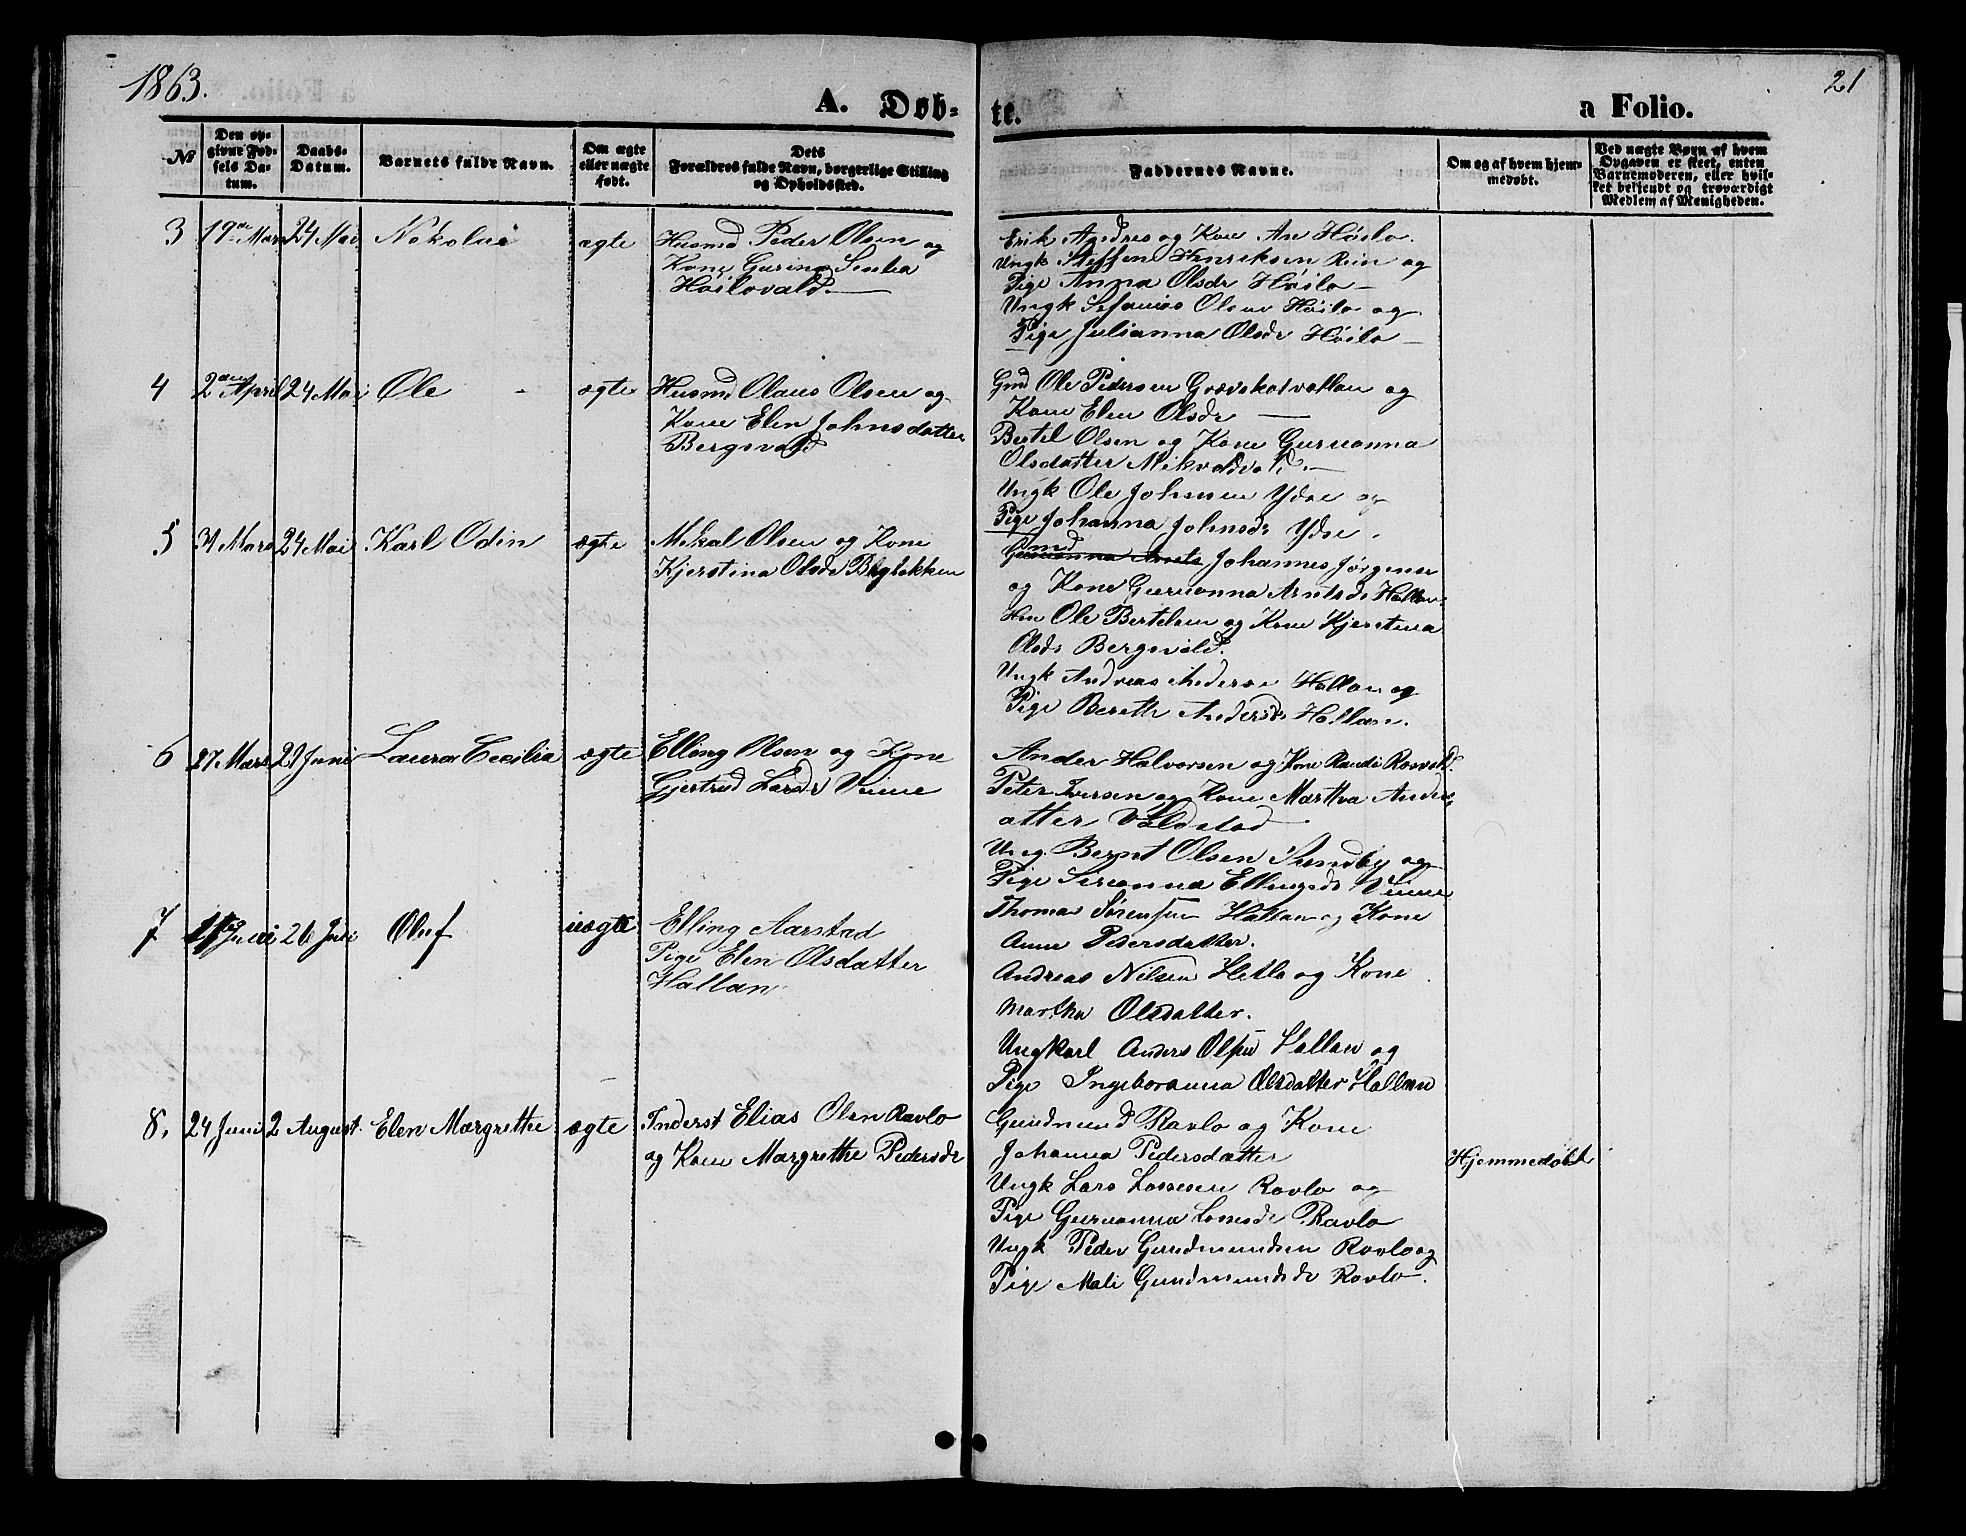 1863.
21
A. Døb-
te.
a Folio.
No
Den op-
givne Fød-
sels Da-
tum.
Daabs-
Datum.
Barnets fulde Navn.
Om ægte
eller uægte
født.
Dets
Forældres fulde Navn, borgerlige Stilling
og Opholdssted.
Faddernes Navne.
Om og af hvem hjem-
medøbt.
Ved uægte Børn af hvem
Opgaven er skeet, enten
Barnemoderen, eller hvil-
ket bekjendt og troværdigt
Medlem af Menigheden.
3 19de Mars 24 Mai Nokolai ægte Husmd Peder Olsen og
Kone Gurina
Høilovald
Erik Andres og Kone An Høilo.
Ungk Steffen Henriksen Rein og
Pige Anna Olsdr Høilo
Ungk Olsen Høilo og
Pige Julianna Olsdr Høilo
4 2den April 24 Mai Ole ægte Husmd Olaus Olsen og
Kone Elen Johnsdatter
Bergsvald
Gmd Ole Pedersen og
Kone Elen Olsdr
Bertel Olsen og Kone Guruanna
Olsdatter
Ungk Ole Johnsen Ydse og
Pige Johanna Johnsdr Ydse.
5 31 Mars 24 Mai Karl Odin ægte Mekal Olsen og Kone
Kjerstina Olsdr
Gmd
Johannes Jørgense
og Kone Guruanna Arntsdr Hallan
Hm Ole Bertelsen og Kone Kjerstina
Olsdr Bergsvald.
Ungk Andreas Anderse Hallan og
Pige Bereth Andersdr Hallan.
6 27 Mars 21 Juni Laura Cecilia ægte Elling Olsen og Kone
Gjertrud Larsdr Vinne
Ander Halvorsen og Kone Randi
Peter Iversen og Kone Martha Anders
atter Voldstad
Ung. Bernt Olsen Sundby og
Pige Sirianna Ellingsdr Vinne
7 Juni 26 Juli Oluf uægte Elling Aarstad
Pige Elen Olsdatter
Hallan
Thomas Sørensen Hallan og Kone
Anne Pedersdatter.
Andreas Nilsen Hetlo og Kone
Martha Olsdatter.
Ungkarl Anders Olsen Hallan og
Pige Ingeboranna Olsdatter Hallan
8. 24 Juni 2 August. Elen Margrethe ægte Inderst Elias Olsen Ravlo
og Kone Margrethe Pedersdr
Gundmund Ravlo og Kone
Johanna Pedersdatter
Hjemmedøbt
Ungk Lars Lassesen Ravlo og
Pige Guruanna Ravlo
Ungk Peder Gundmundsen Ravlo og
Pige Mali Gundmundsdr Ravlo.